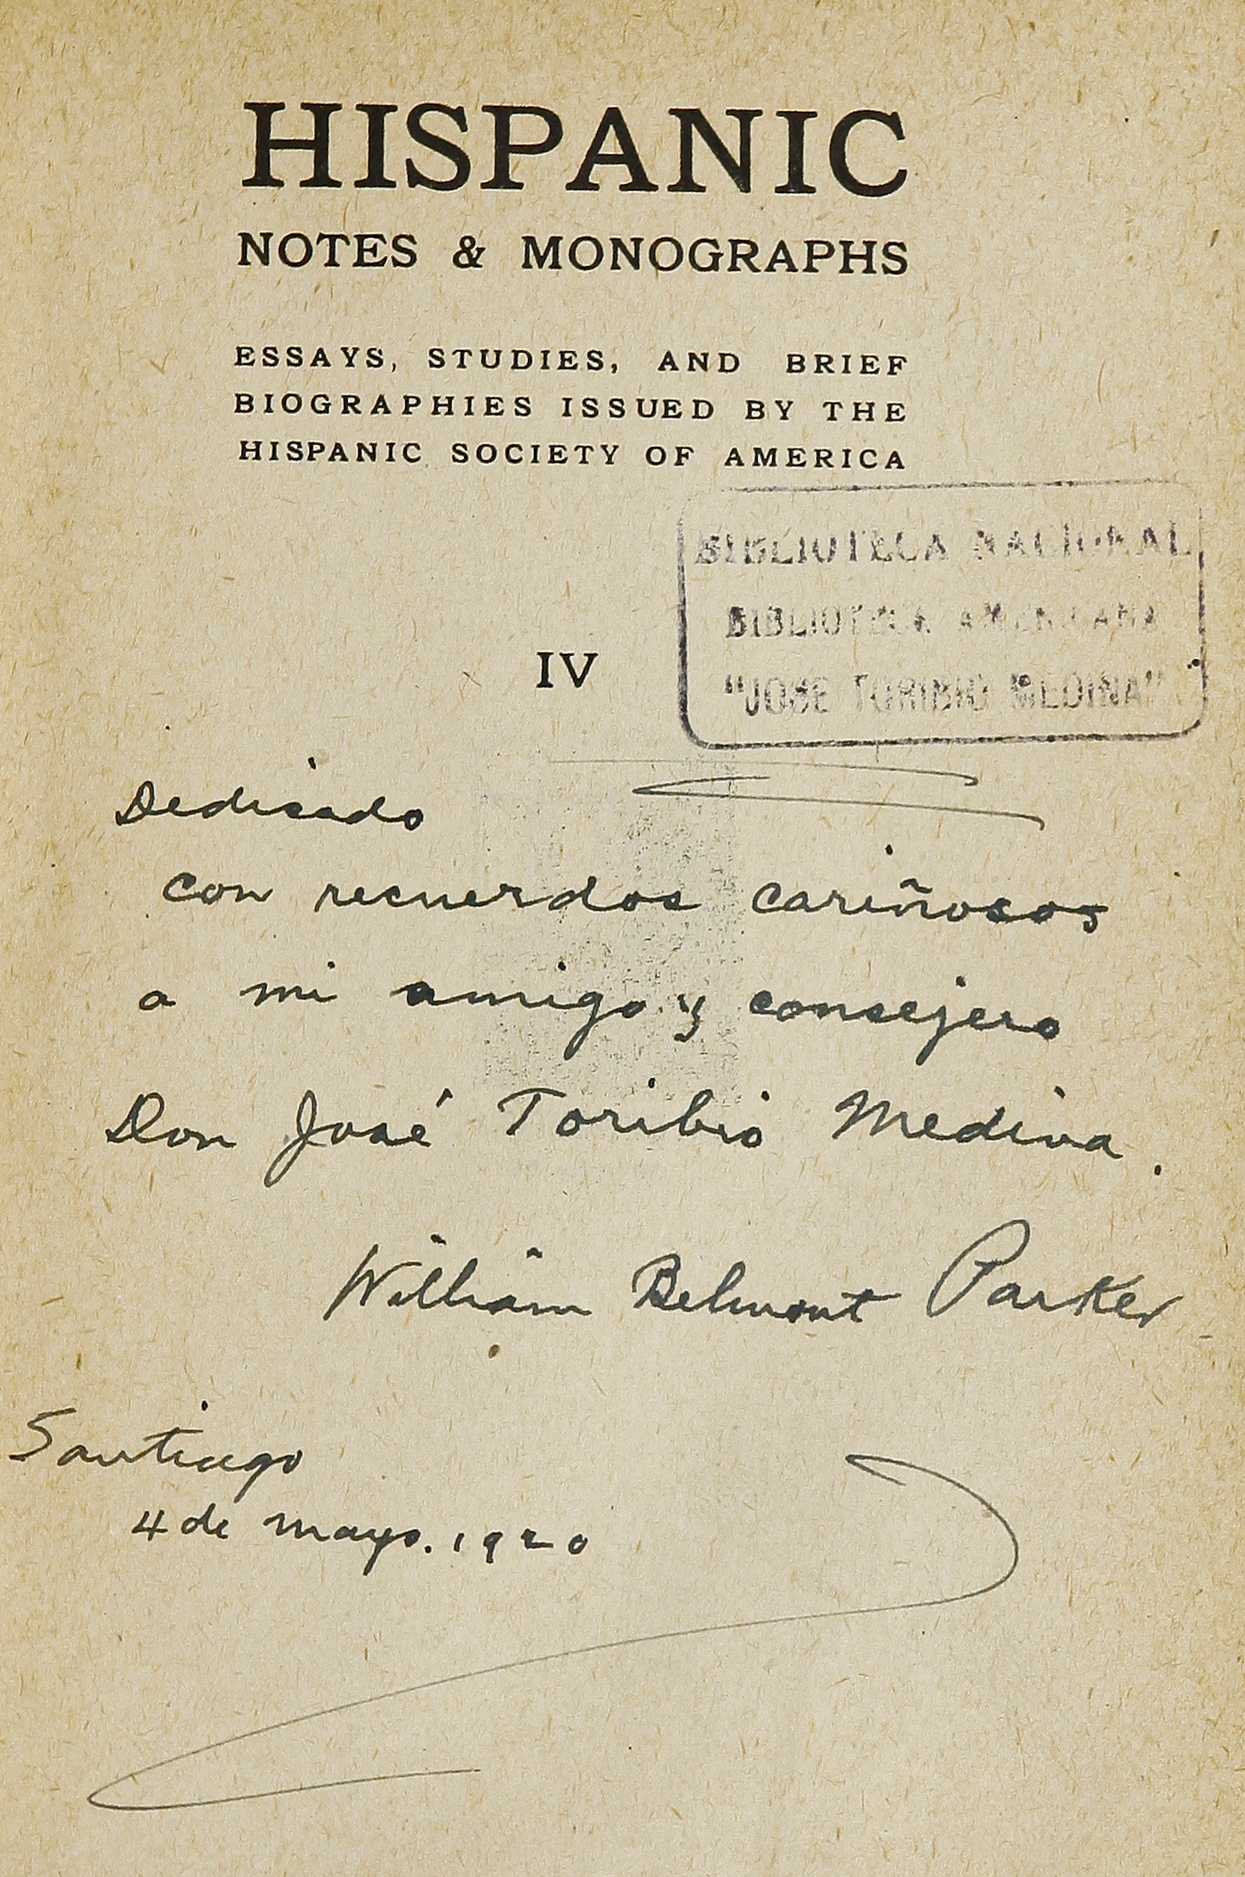 HISPANIC
NOTES & MONOGRAPHS
ESSAYS, STUDIES, AND BRIEF
BIOGRAPHIES ISSUED BY THE
HISPANIC SOCIETY OF AMERICA
BIBLIOTECA NACIONAL
BIBLIOTECA AMERICANA
"JOSE TORIBIO MEDINA"
IV
Dedicado
con recuerdos cariñosos
a mi amigo y consejero
Don José Toribio Medina.
William Belmont Parker
Santiago
4 de mayo. 1920